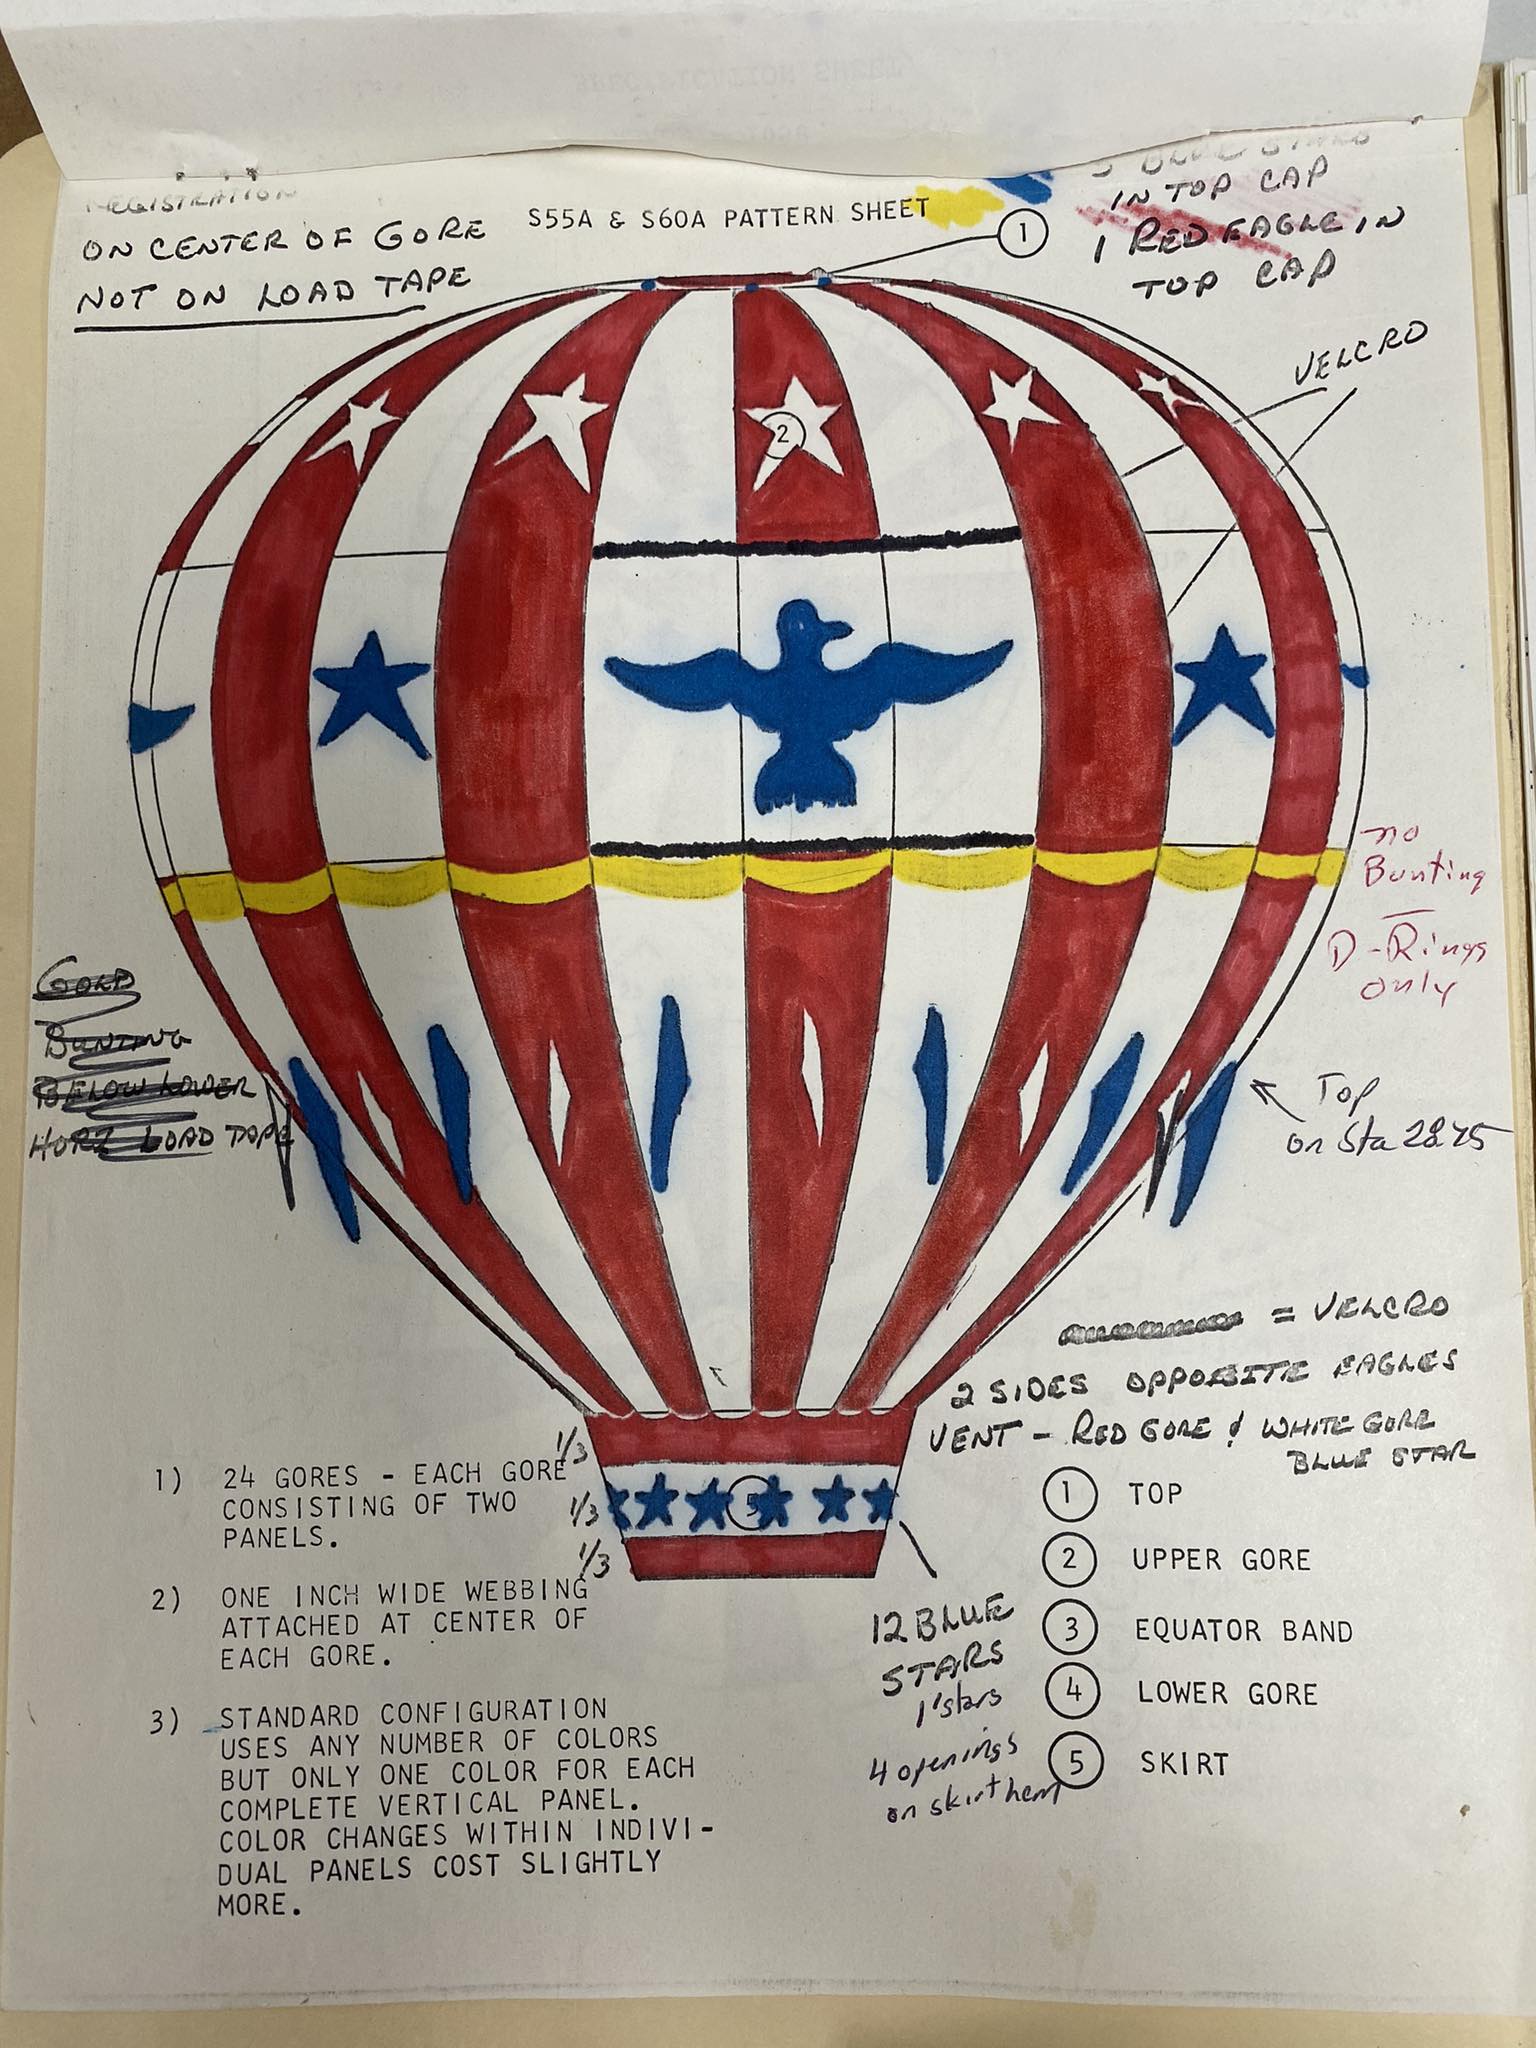 REGISTRATION
ON CENTER OF GORE
NOT ON LOAD TAPE
S55A & S60A PATTERN SHEET
1
5 BLUE STARS
IN TOP CAP
1 RED EAGLE IN
TOP CAP
VELCRO
2
no
Bunting
D-Rings
only
GOLD
BUNTING
BELOW LOWER
HORZ LOAD TAPE
Top
on Sta 2875
= VELCRO
2 SIDES OPPOSITE EAGLES
VENT - RED GORE & WHITE GORE
BLUE STAR
1/3
1/3
1/3
5
1) 24 GORES - EACH GORE
CONSISTING OF TWO
PANELS.
2) ONE INCH WIDE WEBBING
ATTACHED AT CENTER OF
EACH GORE.
3) STANDARD CONFIGURATION
USES ANY NUMBER OF COLORS
BUT ONLY ONE COLOR FOR EACH
COMPLETE VERTICAL PANEL.
COLOR CHANGES WITHIN INDIVI-
DUAL PANELS COST SLIGHTLY
MORE.
12 BLUE
STARS
1' stars
4 openings
on skirt hem
1 TOP
2 UPPER GORE
3 EQUATOR BAND
4 LOWER GORE
5 SKIRT